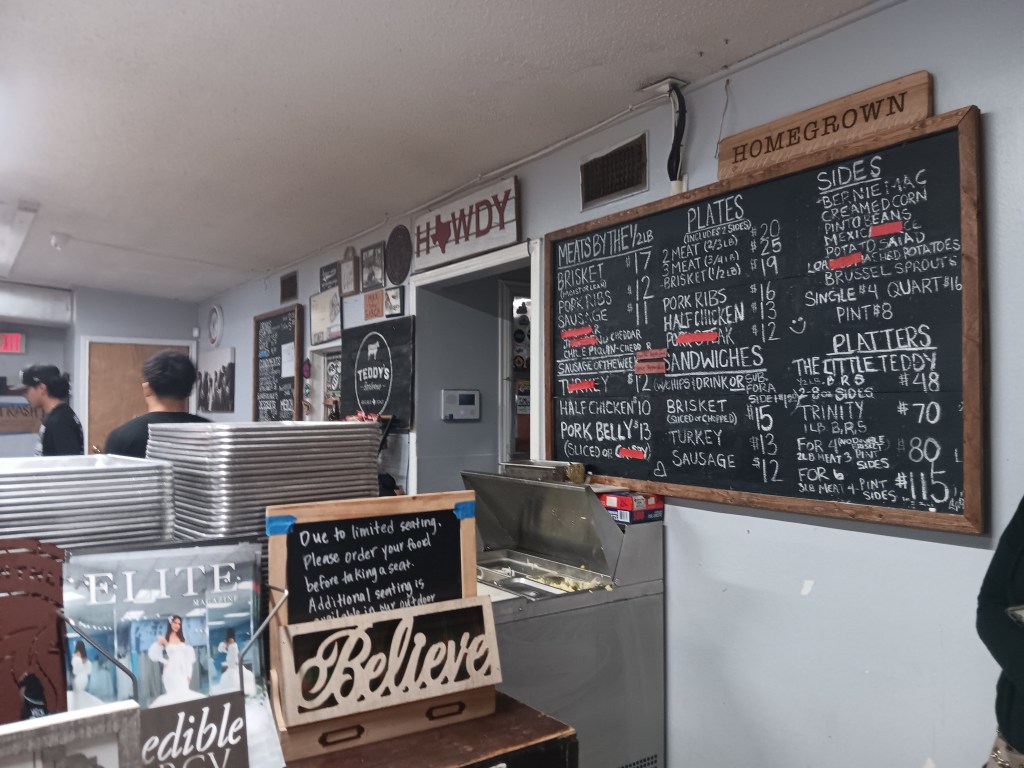 HOMEGROWN
HOWDY
MEATS BY THE 1/2LB
BRISKET $17
PORK RIBS $12
SAUSAGE $11
CHEDDAR
CHILE PIQUIN-CHEDD
SAUSAGE OF THE WEEK
TURKEY $12
HALF CHICKEN $10
PORK BELLY $13
(SLICED OR
PLATES
(INCLUDES 2 SIDES)
2 MEAT (2/3LB) $20
3 MEAT (3/4LB) $25
BRISKET (1/2LB) $19
PORK RIBS $16
HALF CHICKEN $13
$12
SANDWICHES
(W/CHIPS & DRINK OR SUB
FOR A
SIDE
BRISKET
(SLICED OR CHOPPED) $15
TURKEY $13
SAUSAGE $12
SIDES
BERNIE MAC
CREAMED CORN
PINTO BEANS
MEXIC
POTATO SALAD
MASHED POTATOES
BRUSSEL SPROUTS
SINGLE $4 QUART $16
PINT $8
PLATTERS
THE LITTLE TEDDY
$48
2-8oz SIDES
TRINITY $70
1LB B,R,S
FOR 4 $80
2LB MEAT 3 PINT
SIDES
FOR 6 $115
3LB MEAT 4 PINT
SIDES
TEDDY'S
Barbecue
TRASH
Due to limited seating,
Please order your food
before taking a seat.
Additional seating is
available in our outdoor
Believe
ELITE
MAGAZINE
edible
RGV